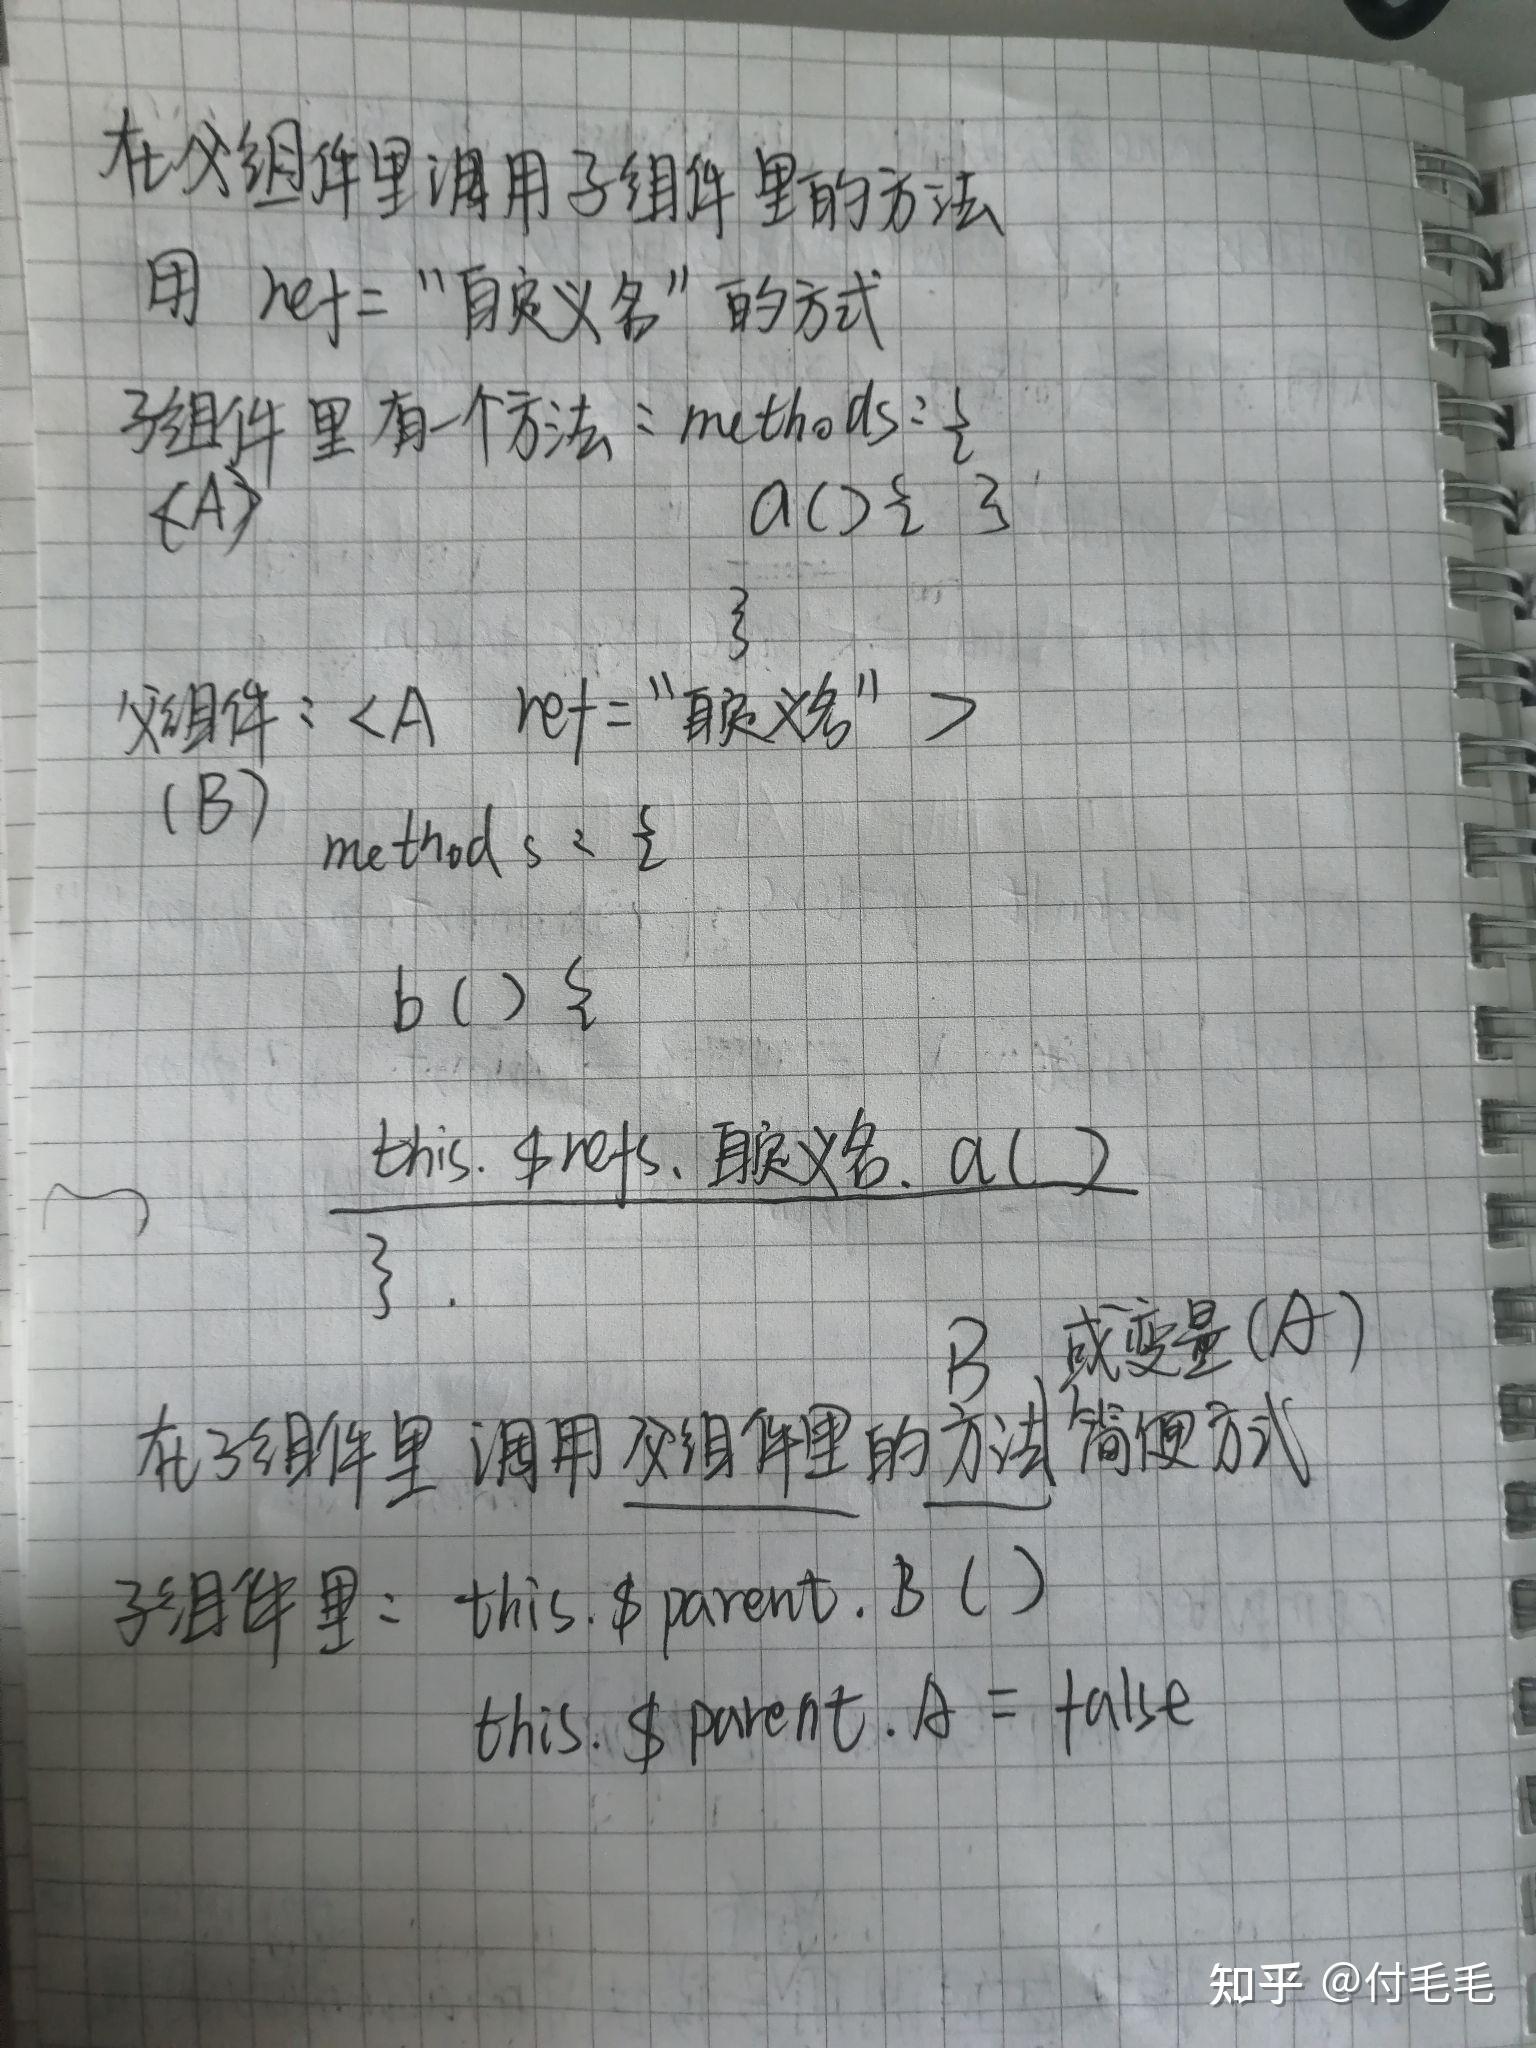 在父组件里调用子组件里的方法
用 ref="自定义名"的方式
子组件里有一个方法：methods：{
<A>
a(){ }
}
父组件：<A ref="自定义名" >
(B)
methods：{
b(){
this.$refs.自定义名.a()
}.
B 或变量(A)
在子组件里调用父组件里的方法简便方式
子组件里：this.$parent.B()
this.$parent.A=false
知乎 @付毛毛